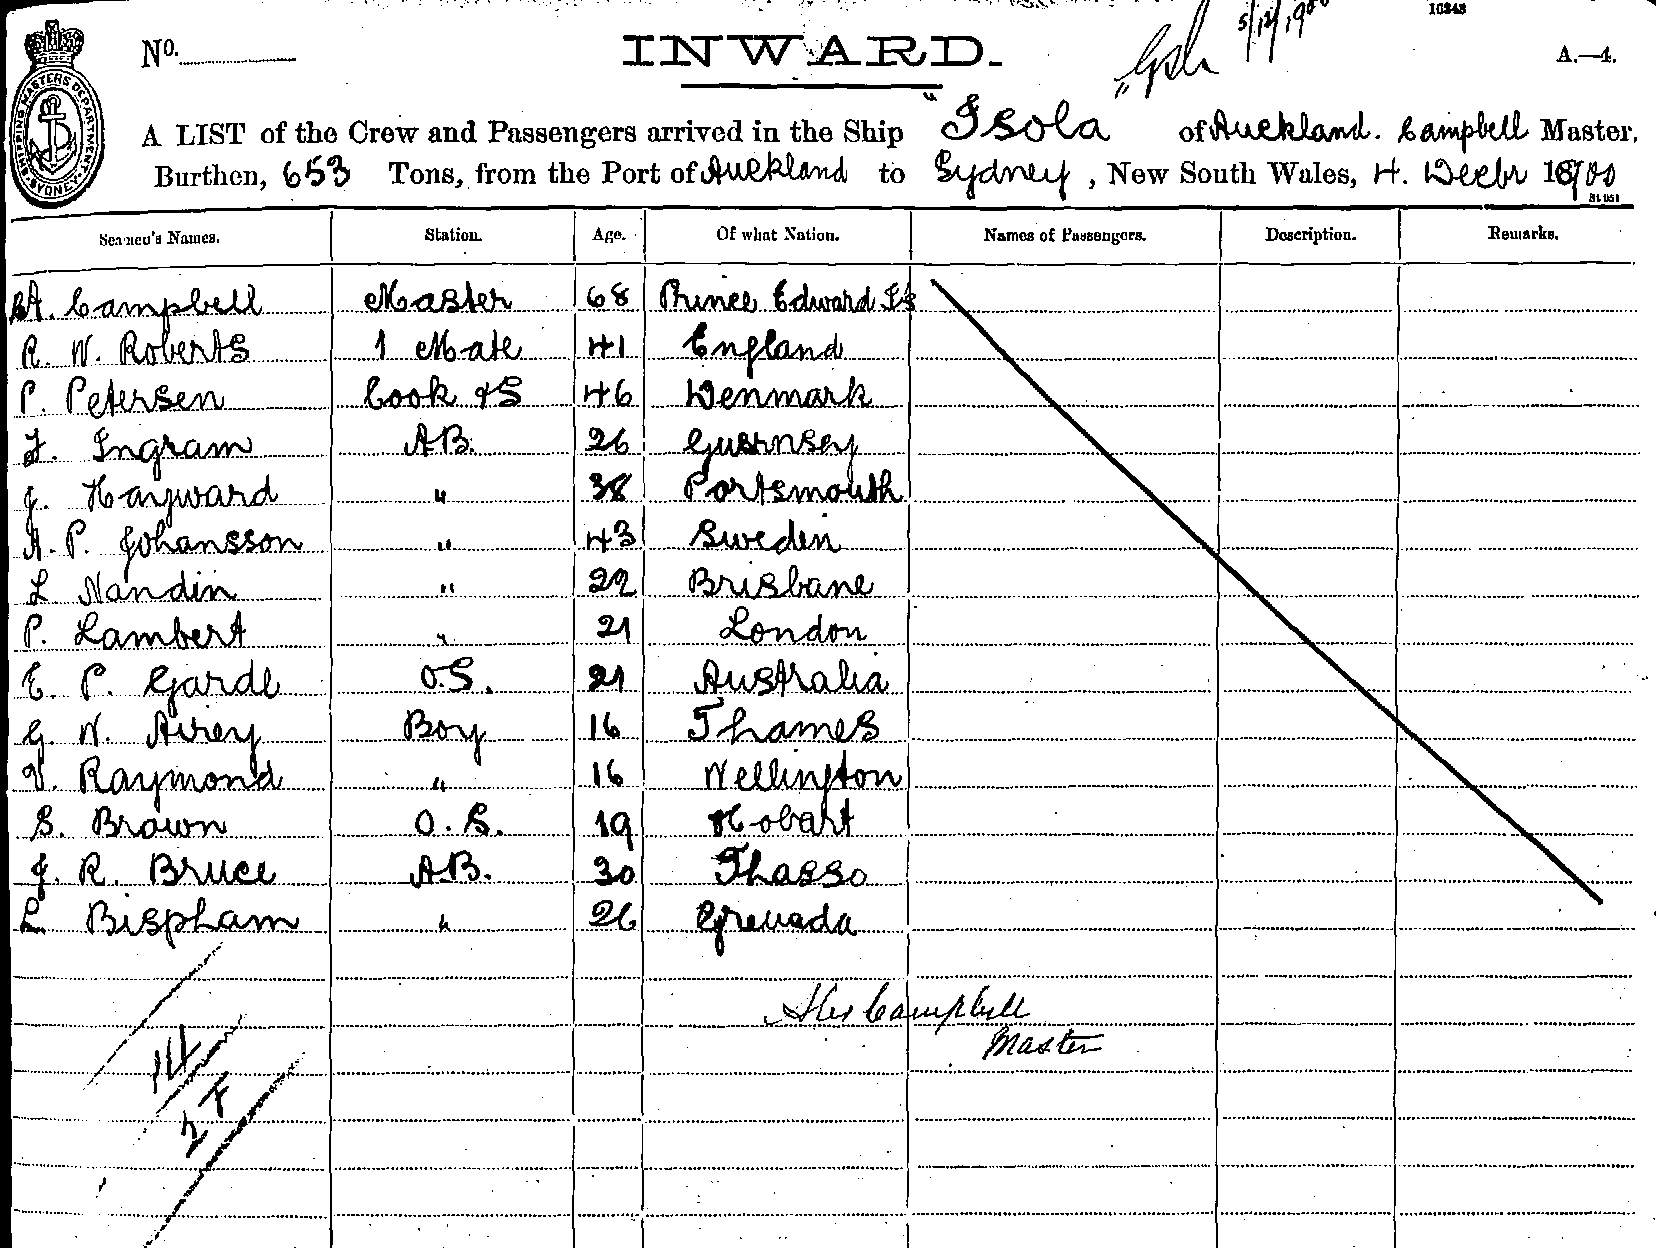 10243
5/12/1900
No.
INWARD.
A.—4.
A LIST of the Crew and Passengers arrived in the Ship "Isola of Auckland. Campbell Master,
Burthen, 653 Tons, from the Port of Auckland to Sydney, New South Wales, 4. Decbr 1900
SHIPPING MASTERS DEPARTMENT SYDNEY
Seamen's Names. Station. Age. Of what Nation. Names of Passengers. Description. Remarks.
A. Campbell Master 68 Prince Edward Is
R. W. Roberts 1 Mate 41 England
P. Petersen Cook & S 46 Denmark
F. Ingram A.B. 26 Guernsey
J. Hayward " 38 Portsmouth
A. P. Johansson " 43 Sweden
L Nandin " 22 Brisbane
P. Lambert " 21 London
E. P. Garde O.S. 21 Australia
G. W. Airey Boy 16 Thames
V. Raymond " 16 Wellington
S. Brown O. S. 19 Hobart
J. R. Bruce A.B. 30 Thasso
L Bispham " 26 Grenada
Alex Campbell
Master
14
2 F